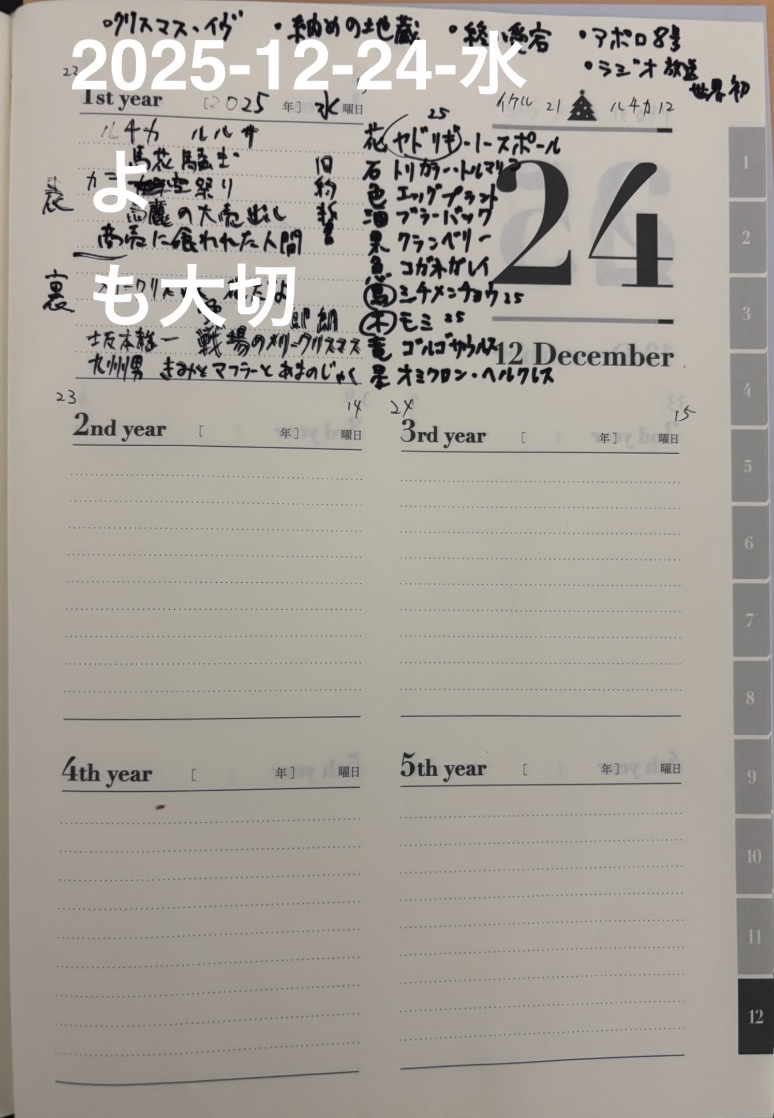 ・クリスマス・イヴ ・納めの地蔵 ・終い愛宕 ・アポロ8号
・ラジオ放送 世界初
2025-12-24-水
22
1st year [2025 年] 水 曜日
イケル 21 ルチカ 12
ルチカ ルルサ
馬花騒ぎ
祭り
の大売出し
商売に食われた人間
よ
も大切
表
裏
旧約
坂本 一 戦場のメリークリスマス
九州男 きみとマフラーとあまのじゃく
25
花 ヤドリギ・ノースポール
石 トリカラー・トルマリン
色 エッグプラント
酒 ブラーバック
果 クランベリー
魚 コガネガレイ
鳥 シチメンチョウ 25
木 モミ 25
竜 ゴルゴサウルス
星 オミクロン・ヘルクレス
24
12 December
23 14
2nd year [ 年] 曜日
24 15
3rd year [ 年] 曜日
4th year [ 年] 曜日
5th year [ 年] 曜日
1
2
3
4
5
6
7
8
9
10
11
12